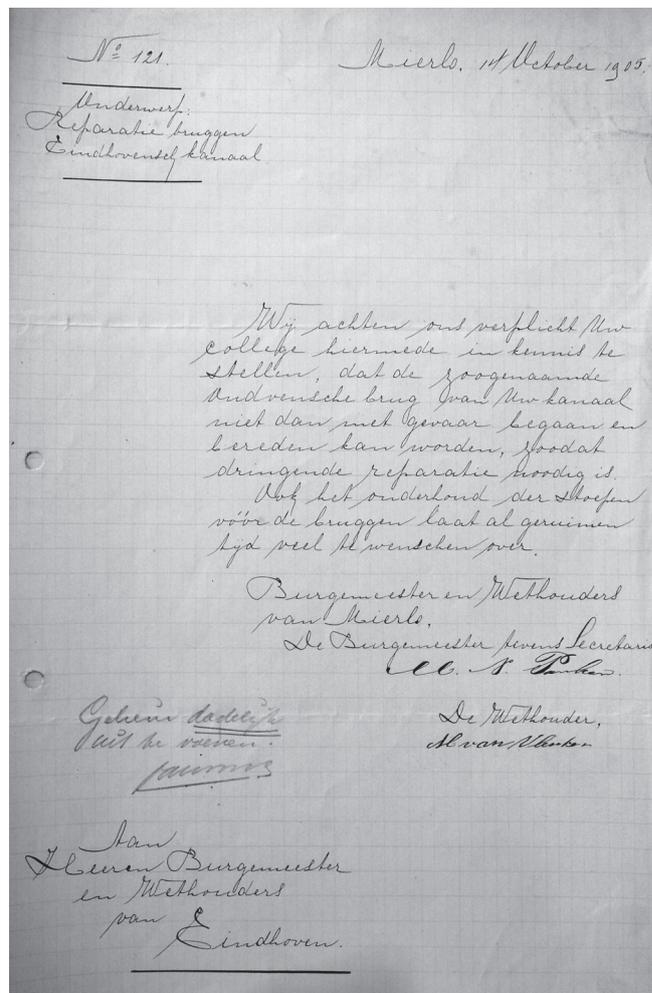 No 121.
Mierlo, 14 October 1905.
Onderwerp:
Reparatie bruggen
Eindhovensch kanaal
Wij achten ons verplicht Uw
college hiermede in kennis te
stellen, dat de zoogenaamde
Oudvensche brug van Uw kanaal
niet dan met gevaar begaan en
bereden kan worden, zoodat
dringende reparatie noodig is.
Ook het onderhoud der stoepen
vóór de bruggen laat al geruimen
tijd veel te wenschen over.
Burgemeester en Wethouders
van Mierlo,
De Burgemeester tevens Secretaris
M. N.
De Wethouder,
van
Gelieve dadelijk
uit te voeren.
Aan
Heeren Burgemeester
en Wethouders
van
Eindhoven.